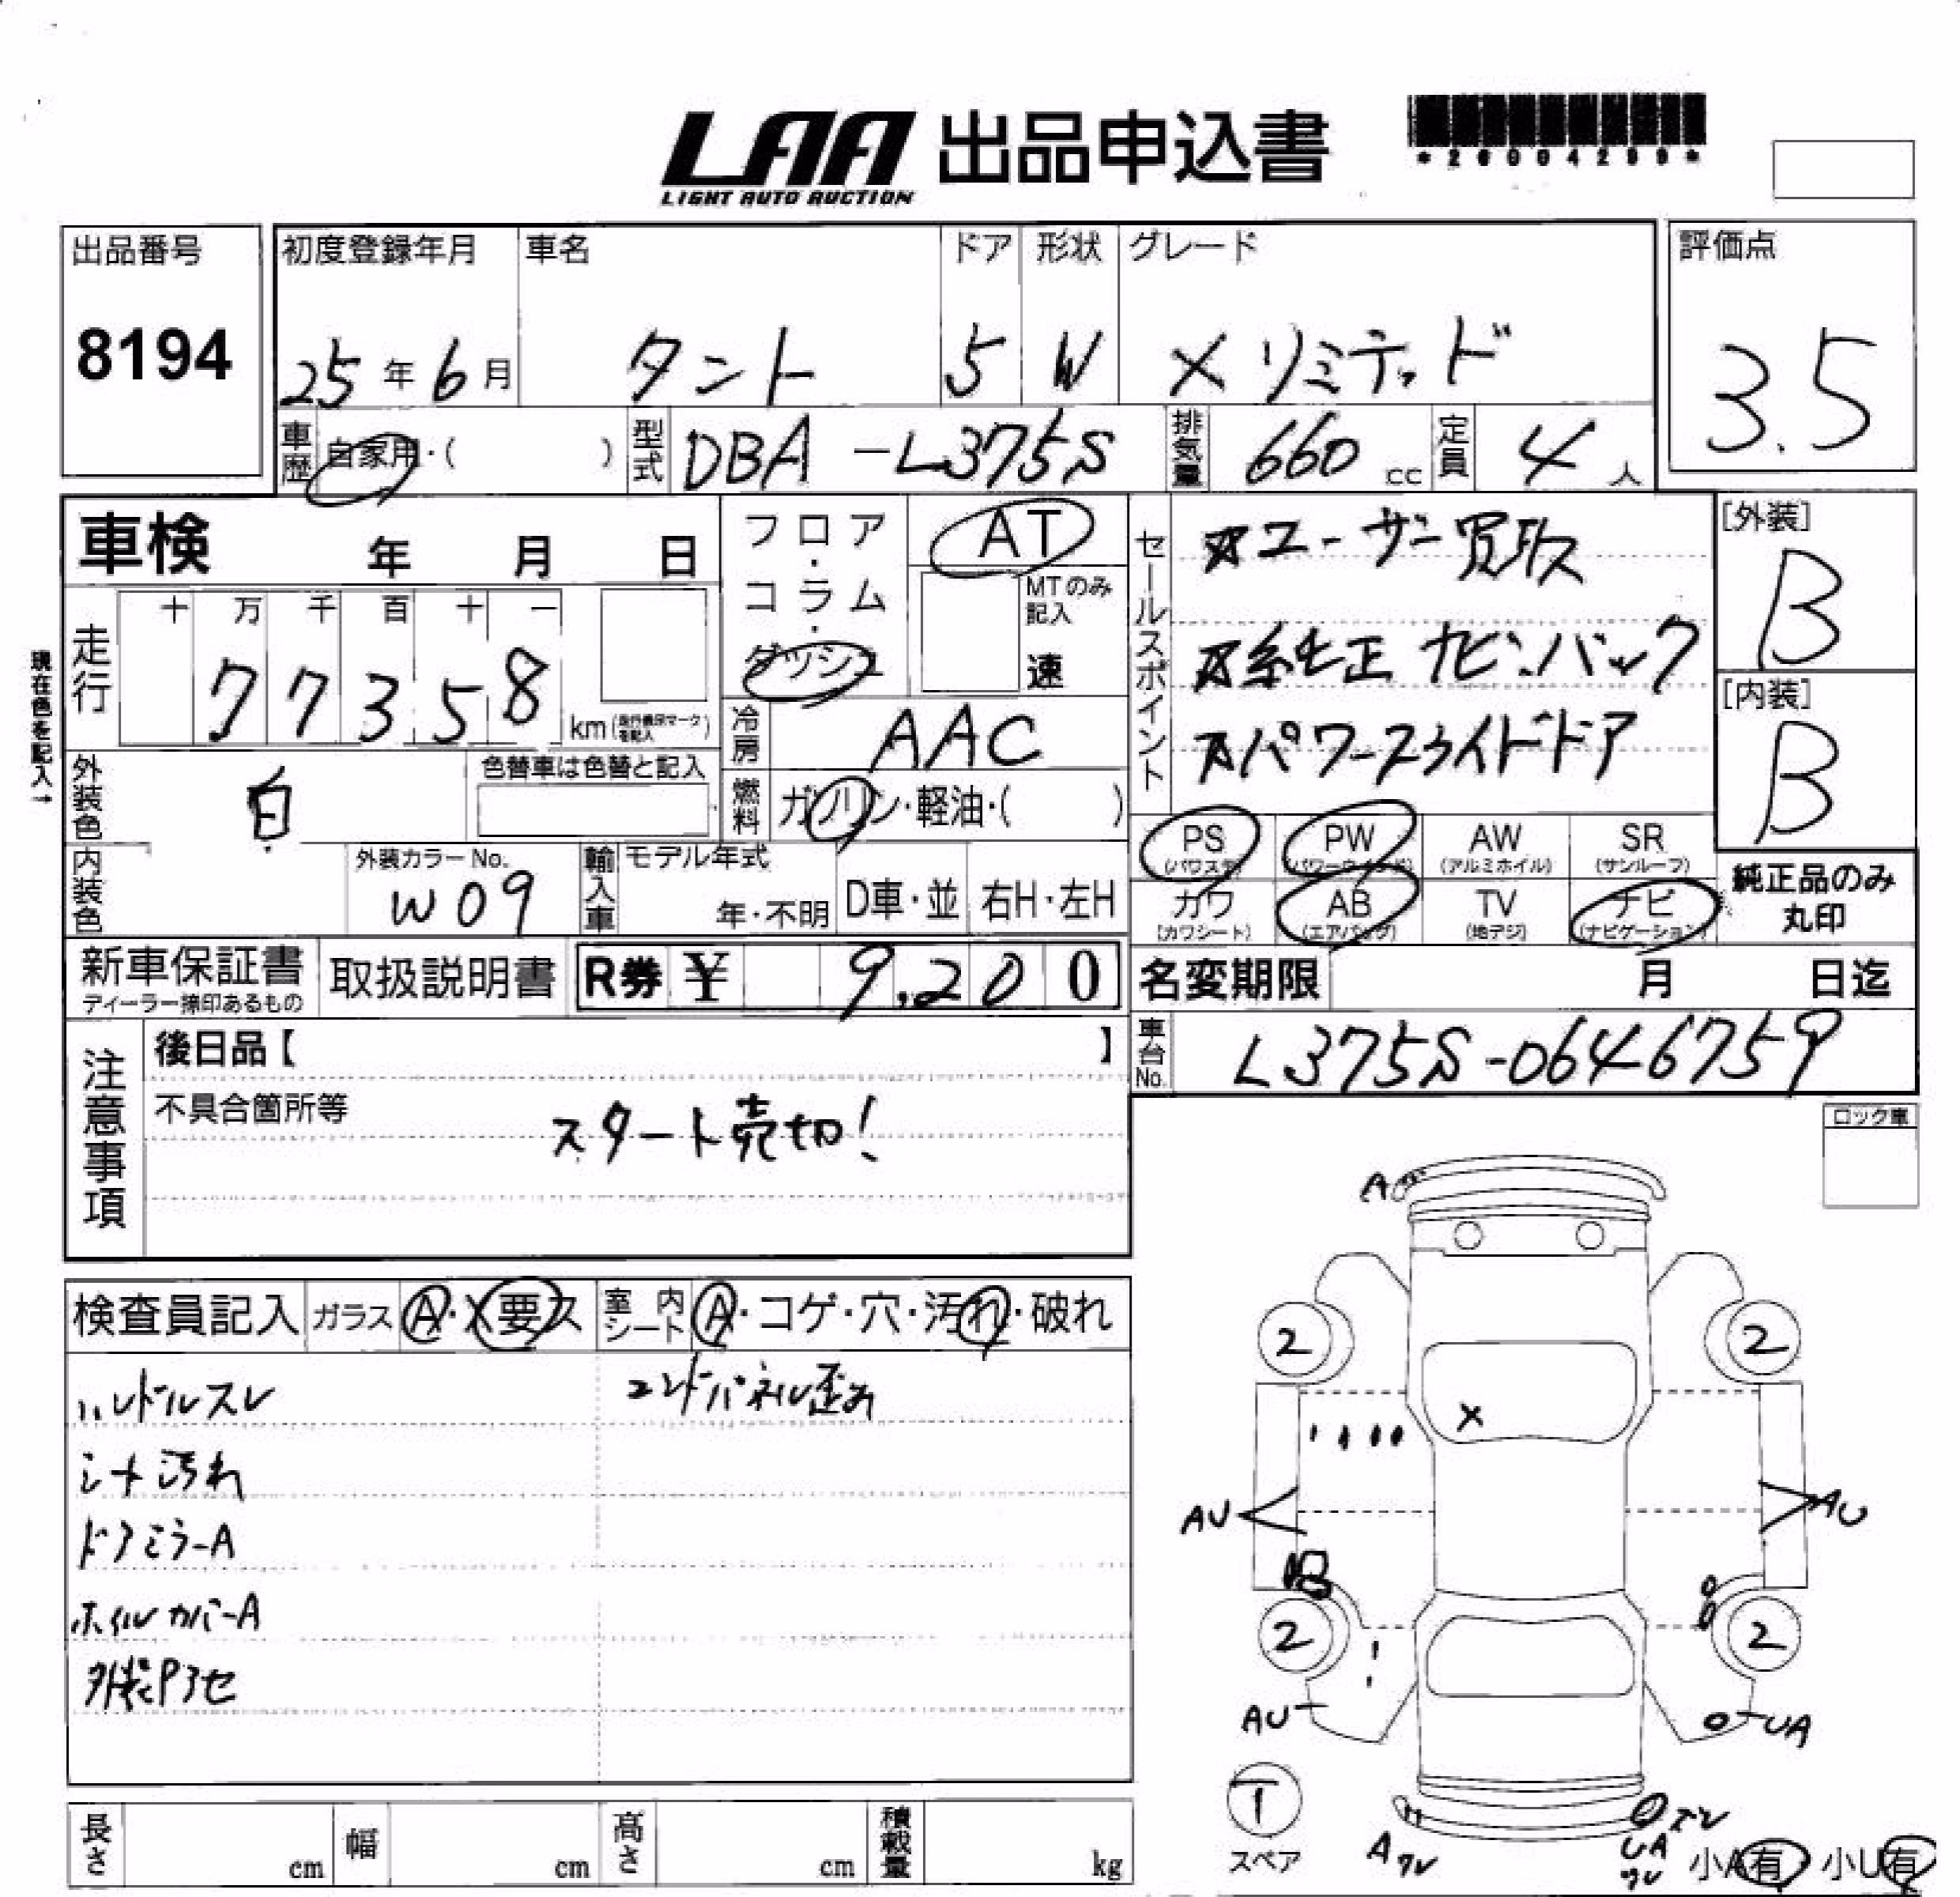 LAA 出品申込書
LIGHT AUTO AUCTION
*26004299*
出品番号 初度登録年月 車名 ドア 形状 グレード 評価点
8194 25年6月 タント 5 W Xリミテッド 3.5
車歴 自家用・( ) 型式 DBA-L375S 排気量 660cc 定員 4人
車検 年 月 日
フロア・コラム・ダッシュ
AT
MTのみ記入
速
セールスポイント
☆ユーザー買取
☆純正ナビ.バック
☆パワースライドドア
[外装]
B
[内装]
B
現在色を記入→
走行 十 万 千 百 十 一
77358
km
冷房 AAC
外装色 白 色替車は色替と記入
燃料 ガソリン・軽油・( )
PS (パワステ) PW (パワーウインド) AW (アルミホイル) SR (サンルーフ)
カワ (カワシート) AB (エアバッグ) TV (地デジ) ナビ (ナビゲーション)
純正品のみ丸印
内装色 外装カラーNo. W09 輸入車 モデル年式 年・不明 D車・並 右H・左H
新車保証書 ディーラー捺印あるもの 取扱説明書 R券 ¥ 9,200
名変期限 月 日迄
車台No. L375S-0646759
注意事項
後日品【 】
不具合箇所等
スタート売切!
ロック車
検査員記入 ガラス A・X要ス 室内シート A・コゲ・穴・汚れ・破れ
ハンドルスレ エンドパネル歪み
シート汚れ
ドアミラーA
ホイルカバーA
外装P3セ
A
2 2
X
AU AU
2 2
AU UA
T
スペア
A ワレ
ズレ
UA
ワレ
小A有 小U有
長さ cm 幅 cm 高さ cm 積載量 kg